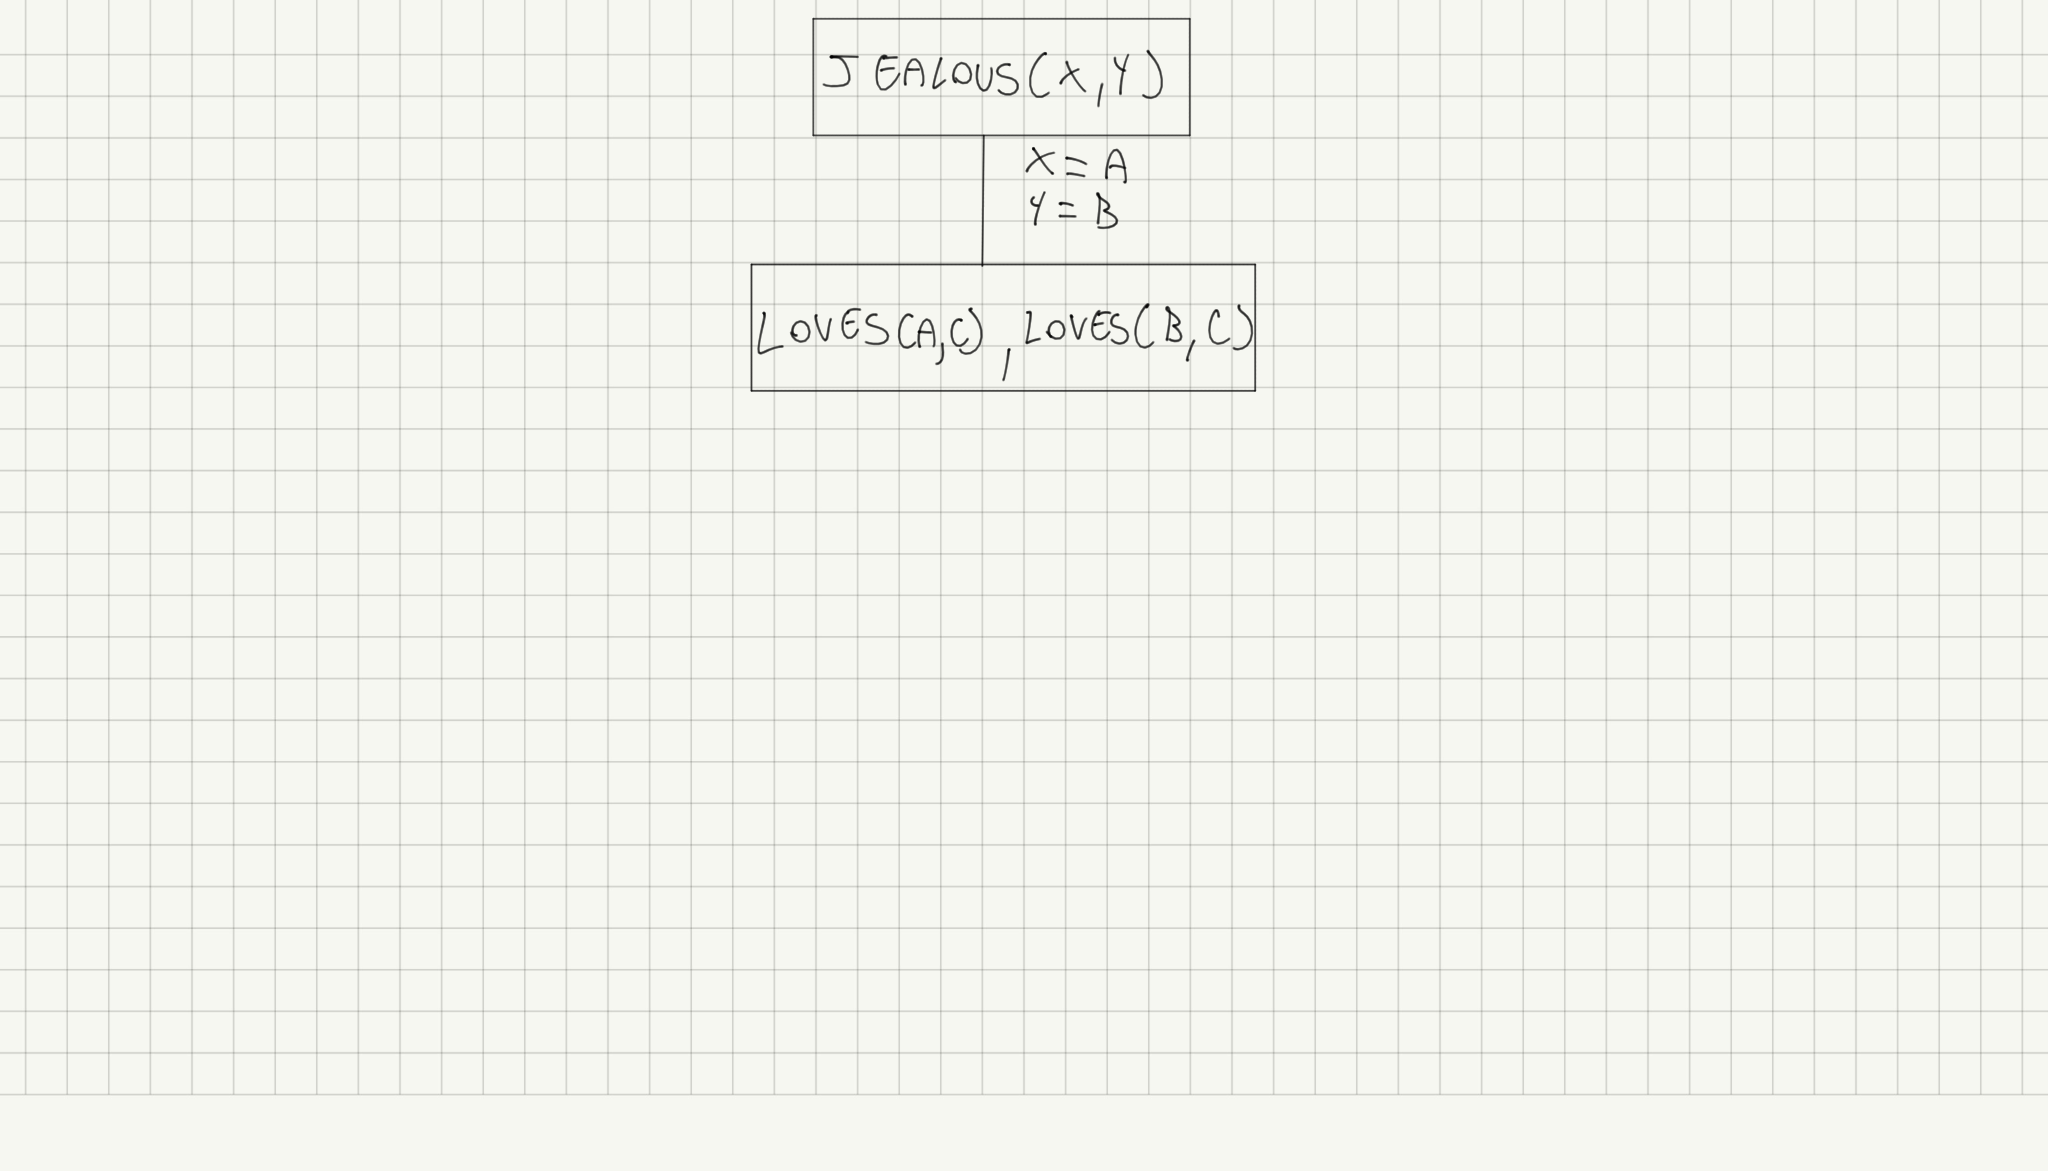 JEALOUS(X,Y)
X=A
Y=B
LOVES(A,C), LOVES(B,C)